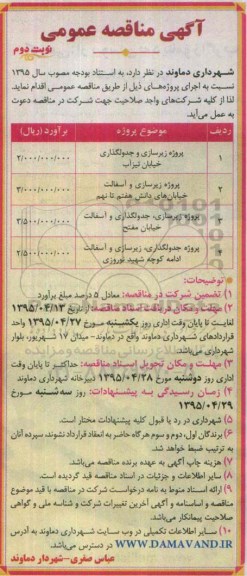 آگهی مناقصه عمومی
نوبت دوم
شهرداری دماوند در نظر دارد، به استناد بودجه مصوب سال ۱۳۹۵
نسبت به اجرای پروژه‌های ذیل از طریق مناقصه عمومی اقدام نماید.
لذا از کلیه شرکت‌های واجد صلاحیت جهت شرکت در مناقصه دعوت
به عمل می‌آید.
ردیف موضوع پروژه برآورد (ریال)
۱ پروژه زیرسازی و جدولگذاری خیابان تیزآب ۲/۰۰۰/۰۰۰/۰۰۰
۲ پروژه زیرسازی و آسفالت خیابان‌های دانش هفتم تا نهم ۳/۰۰۰/۰۰۰/۰۰۰
۳ پروژه زیرسازی، جدولگذاری و آسفالت خیابان مفتح ۳/۵۰۰/۰۰۰/۰۰۰
۴ پروژه جدولگذاری، زیرسازی و آسفالت ادامه کوچه شهید نوروزی ۲/۵۰۰/۰۰۰/۰۰۰
توضیحات:
۱) تضمین شرکت در مناقصه: معادل ۵ درصد مبلغ برآورد
۲) مهلت و مکان دریافت اسناد مناقصه: از تاریخ ۱۳۹۵/۰۴/۱۳
لغایت تا پایان وقت اداری روز یکشنبه مورخ ۱۳۹۵/۰۴/۲۷ واحد
قراردادهای شهرداری دماوند واقع در دماوند- میدان ۱۷ شهریور، بلوار
شهرداری می‌باشد.
۳) مهلت و مکان تحویل اسناد مناقصه: حداکثر تا پایان وقت
اداری روز دوشنبه مورخ ۱۳۹۵/۰۴/۲۸ دبیرخانه شهرداری دماوند
۴) زمان رسیدگی به پیشنهادات: روز سه‌شنبه مورخ
۱۳۹۵/۰۴/۲۹
۵) شهرداری در رد یا قبول کلیه پیشنهادات مختار است.
۶) برندگان اول، دوم و سوم هرگاه حاضر به انعقاد قرارداد نشوند، سپرده آنان
به ترتیب ضبط خواهد شد.
۷) هزینه چاپ آگهی به عهده برنده مناقصه می‌باشد.
۸) سایر اطلاعات و جزئیات در اسناد مناقصه قید گردیده است.
۹) ارائه اسناد منوط به نامه درخواست شرکت در مناقصه با قید موضوع
مناقصه و اساسنامه و آگهی آخرین تغییرات شرکت و شناسه ملی و گواهی
صلاحیت پیمانکار می‌باشد.
۱۰) سایر اطلاعات تکمیلی در وب سایت شهرداری دماوند به آدرس
WWW.DAMAVAND.IR در دسترس می‌باشد.
عباس صفری- شهردار دماوند